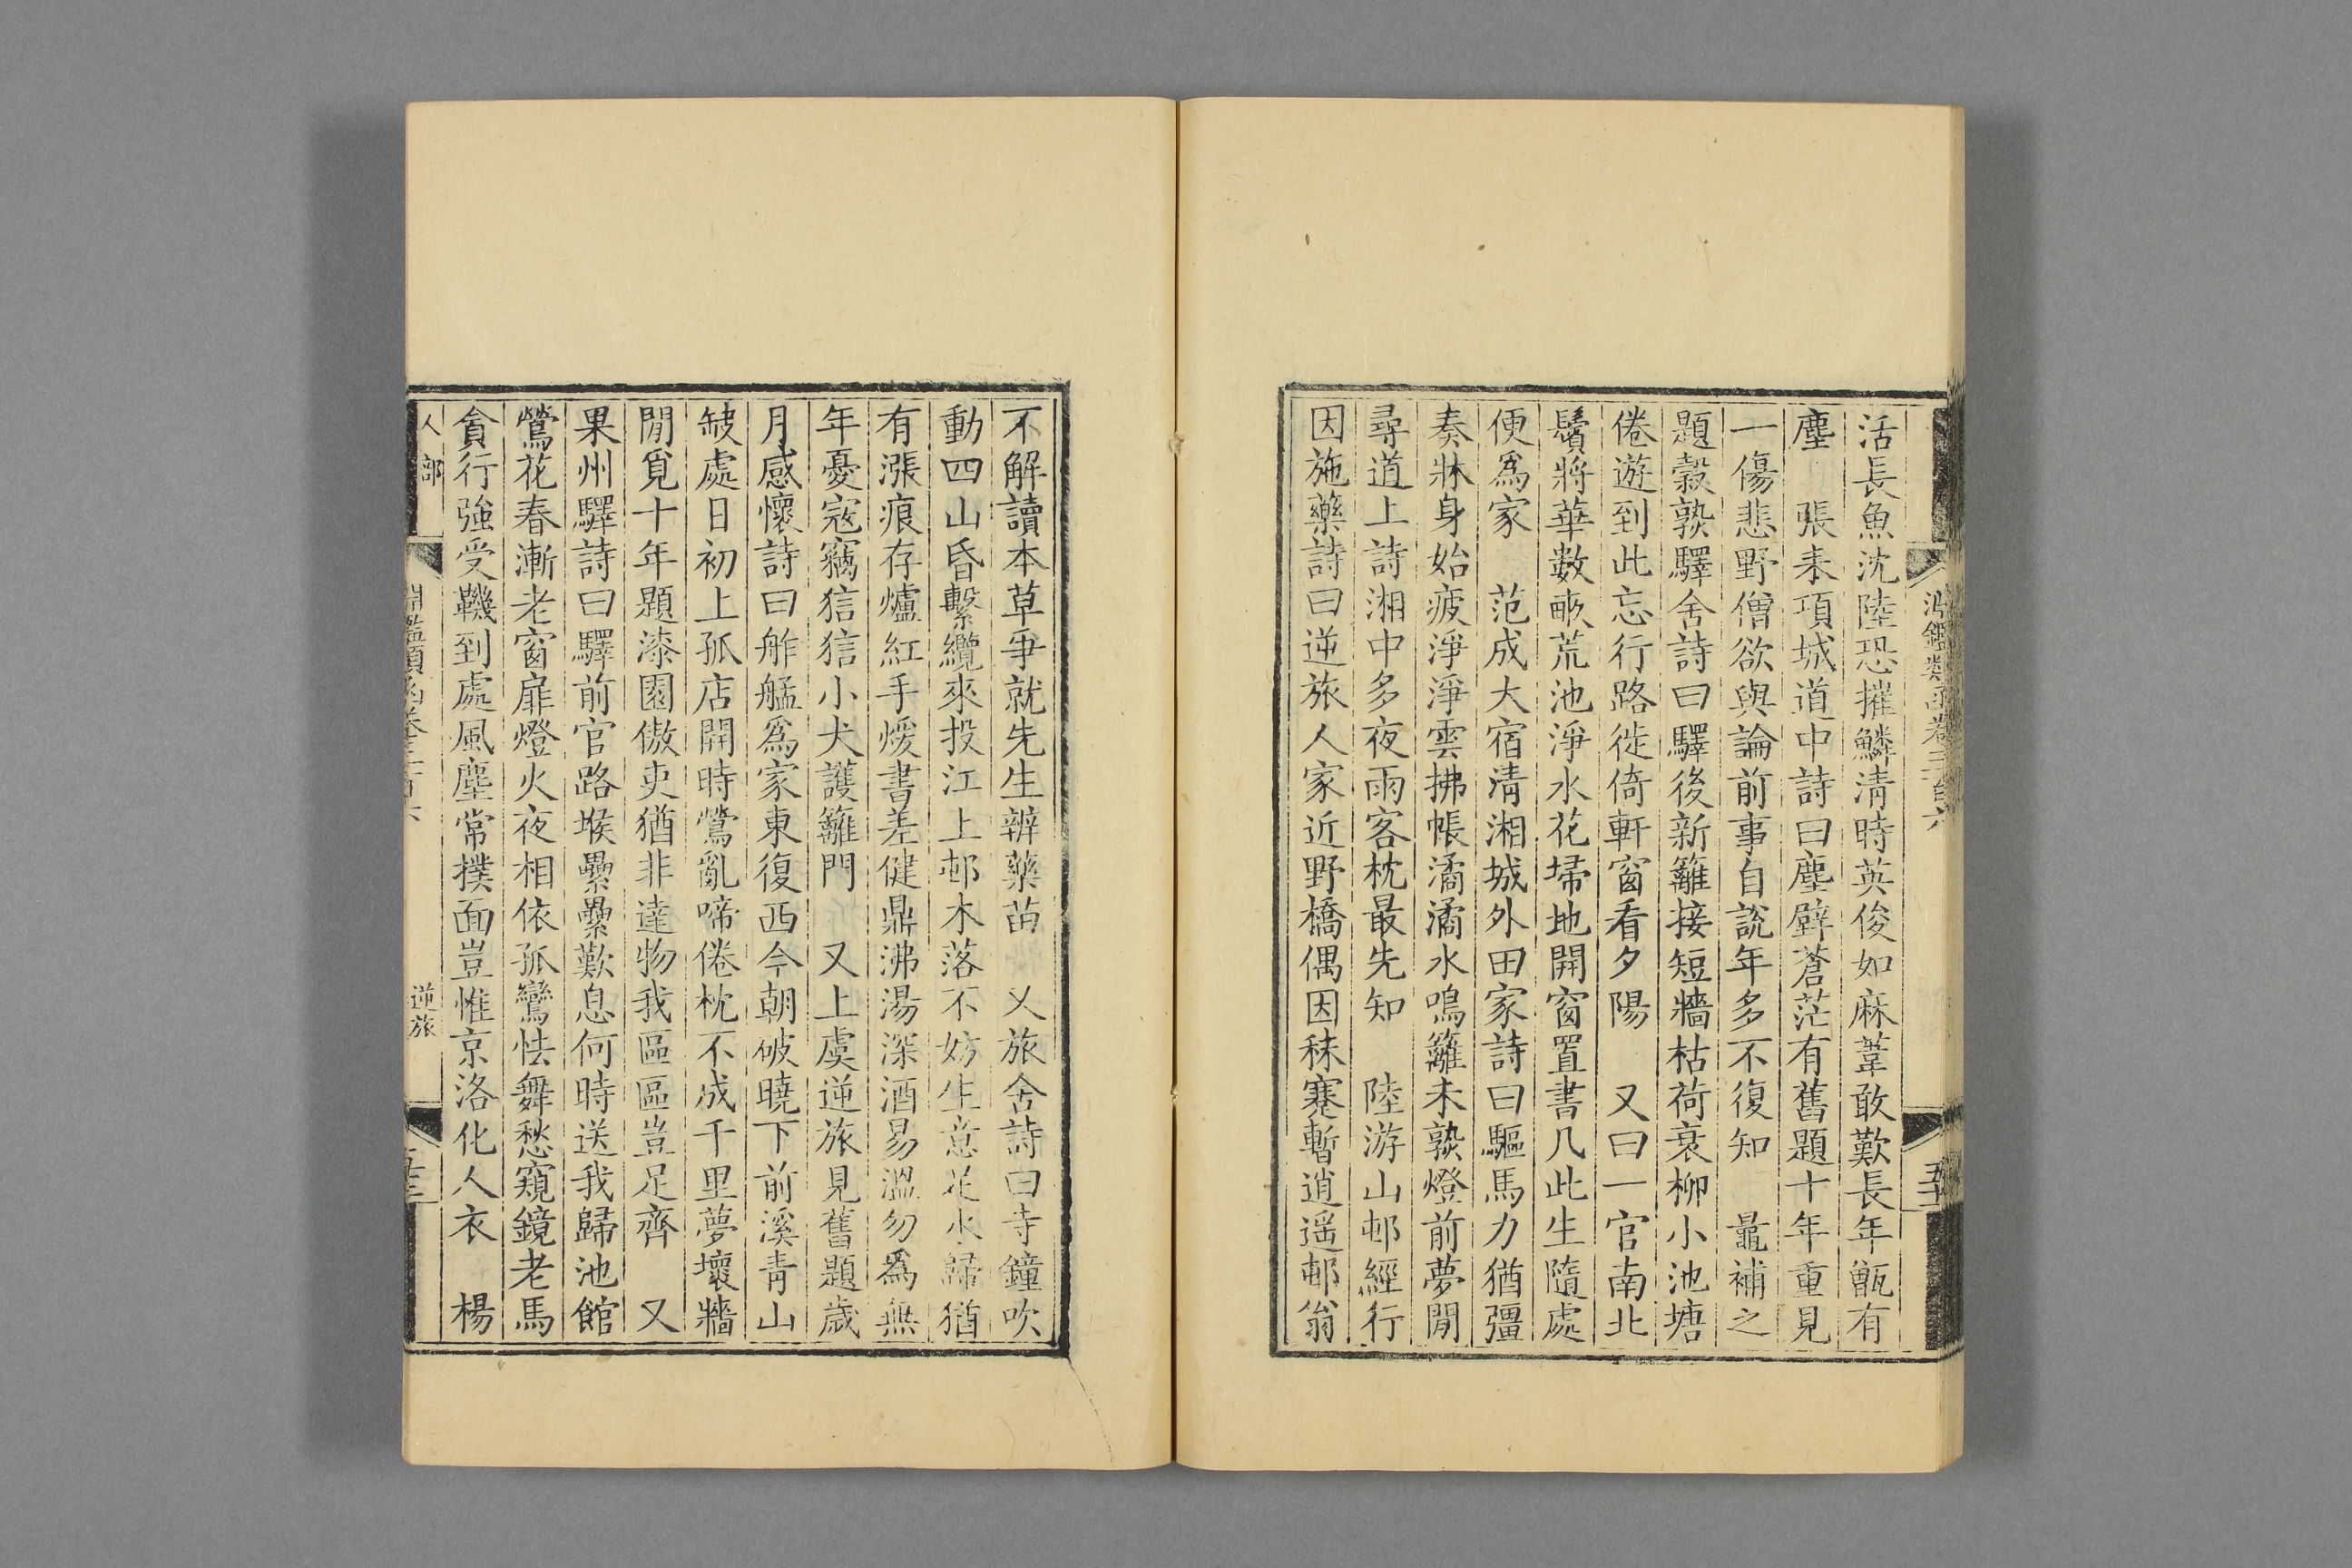 活長魚沈陸恐摧鱗淸時英俊如麻葦敢歎長年甑有
塵　張耒項城道中詩曰塵壁蒼茫有舊題十年重見
一傷悲野僧欲與論前事自說年多不復知　鼂補之
題穀孰驛舍詩曰驛後新籬接短牆枯荷衰柳小池塘
倦遊到此忘行路徙倚軒窗看夕陽　又曰一官南北
鬢將華數畝荒池淨水花埽地開窗置書几此生隨處
便爲家　范成大宿淸湘城外田家詩曰驅馬力猶彊
奏牀身始疲淨淨雲拂帳潏潏水鳴籬未孰燈前夢閒
尋道上詩湘中多夜雨客枕最先知　陸游山邨經行
因施藥詩曰逆旅人家近野橋偶因秣蹇暫逍遥邨翁
不解讀本草爭就先生辨藥苗　又旅舍詩曰寺鐘吹
動四山昏繫纜來投江上邨木落不妨生意足水歸猶
有漲痕存爐紅手煖書差健鼎沸湯深酒易溫勿爲無
年憂寇竊狺狺小犬護籬門　又上虞逆旅見舊題歲
月感懷詩曰舴艋爲家東復西今朝破曉下前溪靑山
缺處日初上孤店開時鶯亂啼倦枕不成千里夢壞牆
閒覓十年題漆園傲吏猶非達物我區區豈足齊　又
果州驛詩曰驛前官路堠纍纍歎息何時送我歸池館
鶯花春漸老窗扉燈火夜相依孤鸞怯舞愁窺鏡老馬
貪行強受鞿到處風塵常撲面豈惟京洛化人衣　楊
人部
逆旅